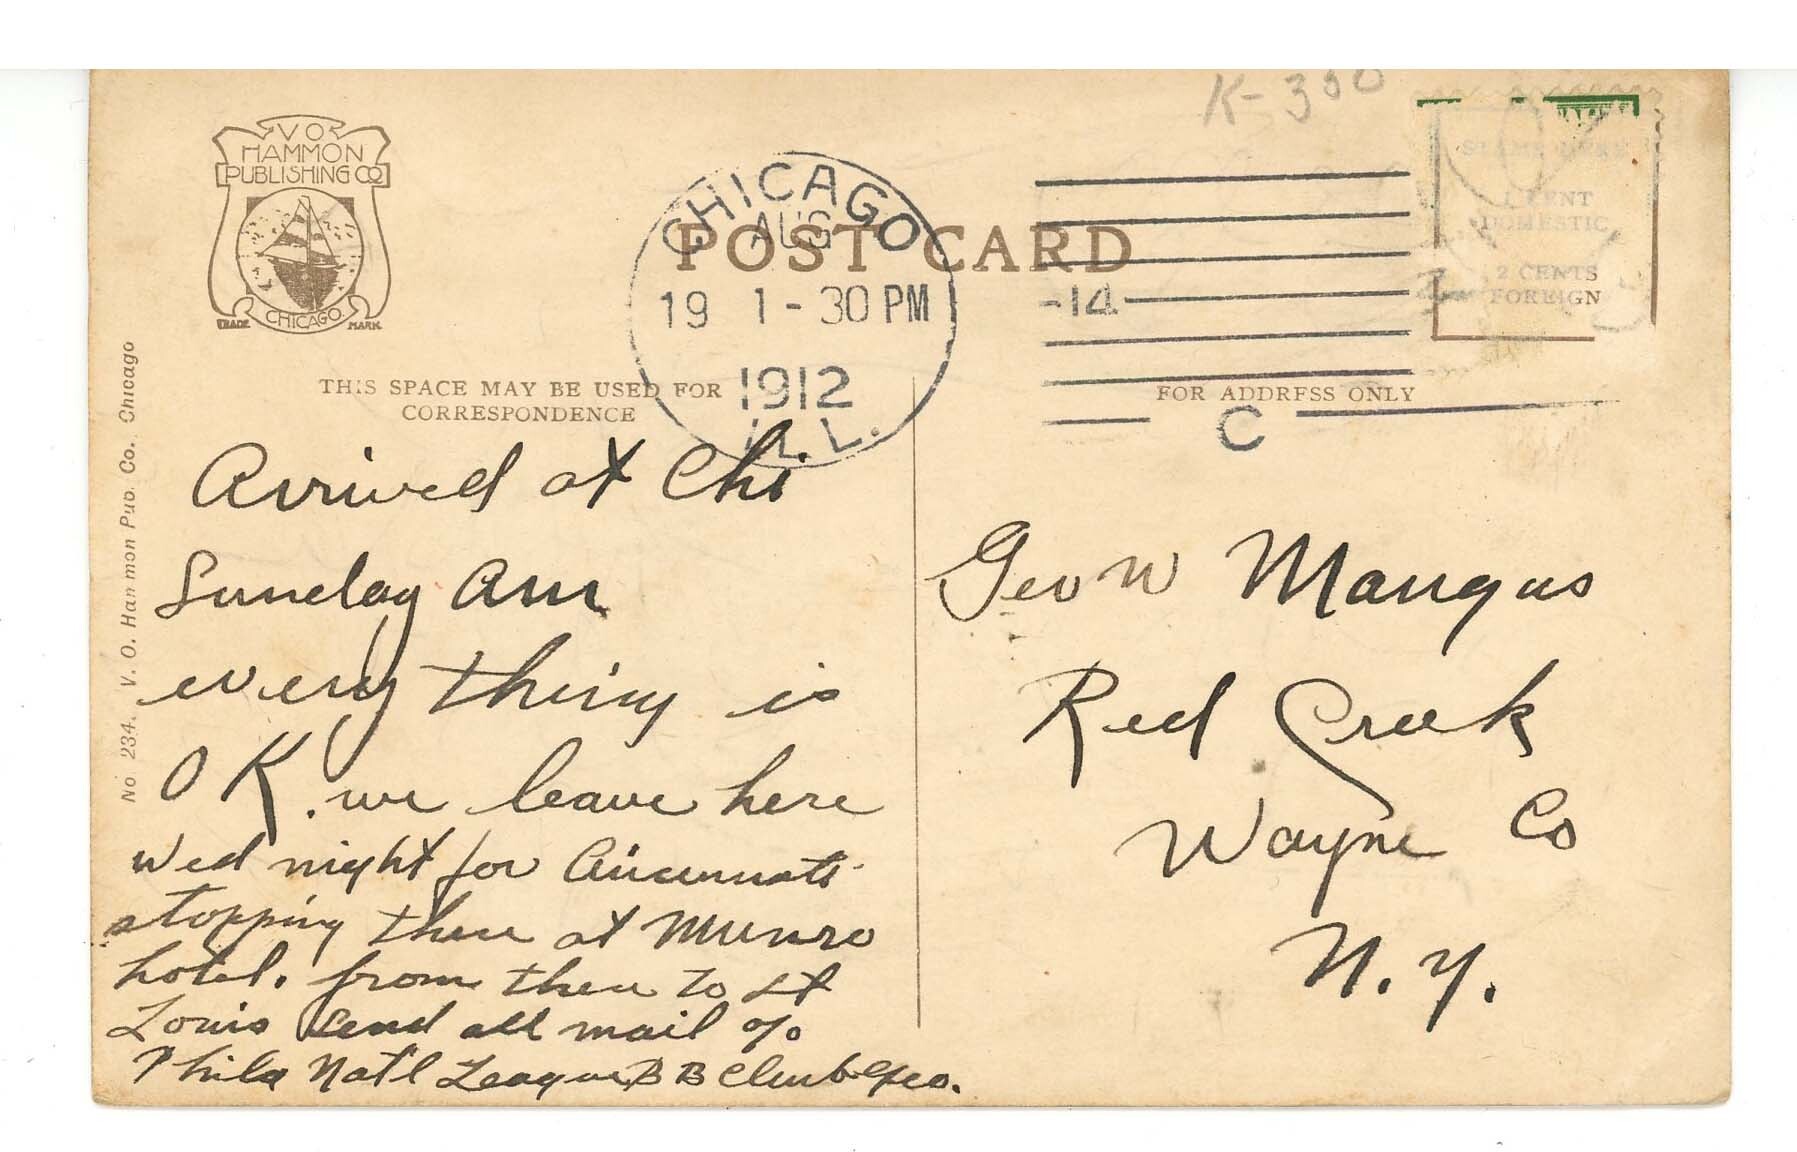 K-350
V O
HAMMON
PUBLISHING CO
CHICAGO.
TRADE MARK
CHICAGO
AUG
19 1-30 PM
1912
ILL.
-14
C
POST CARD
1 CENT
DOMESTIC
2 CENTS
FOREIGN
THIS SPACE MAY BE USED FOR
CORRESPONDENCE
FOR ADDRESS ONLY
No 234. V. O. Hammon Pub. Co., Chicago
Arrived at Chi
Sunday Am
every thing is
O K. we leave here
Wed night for Cincinnati
stopping there at Munro
hotel. from there to St
Louis Send all mail c/o
Phila Nat'l League B B Club Geo.
Geo W Mangus
Red Creek
Wayne Co
N. Y.